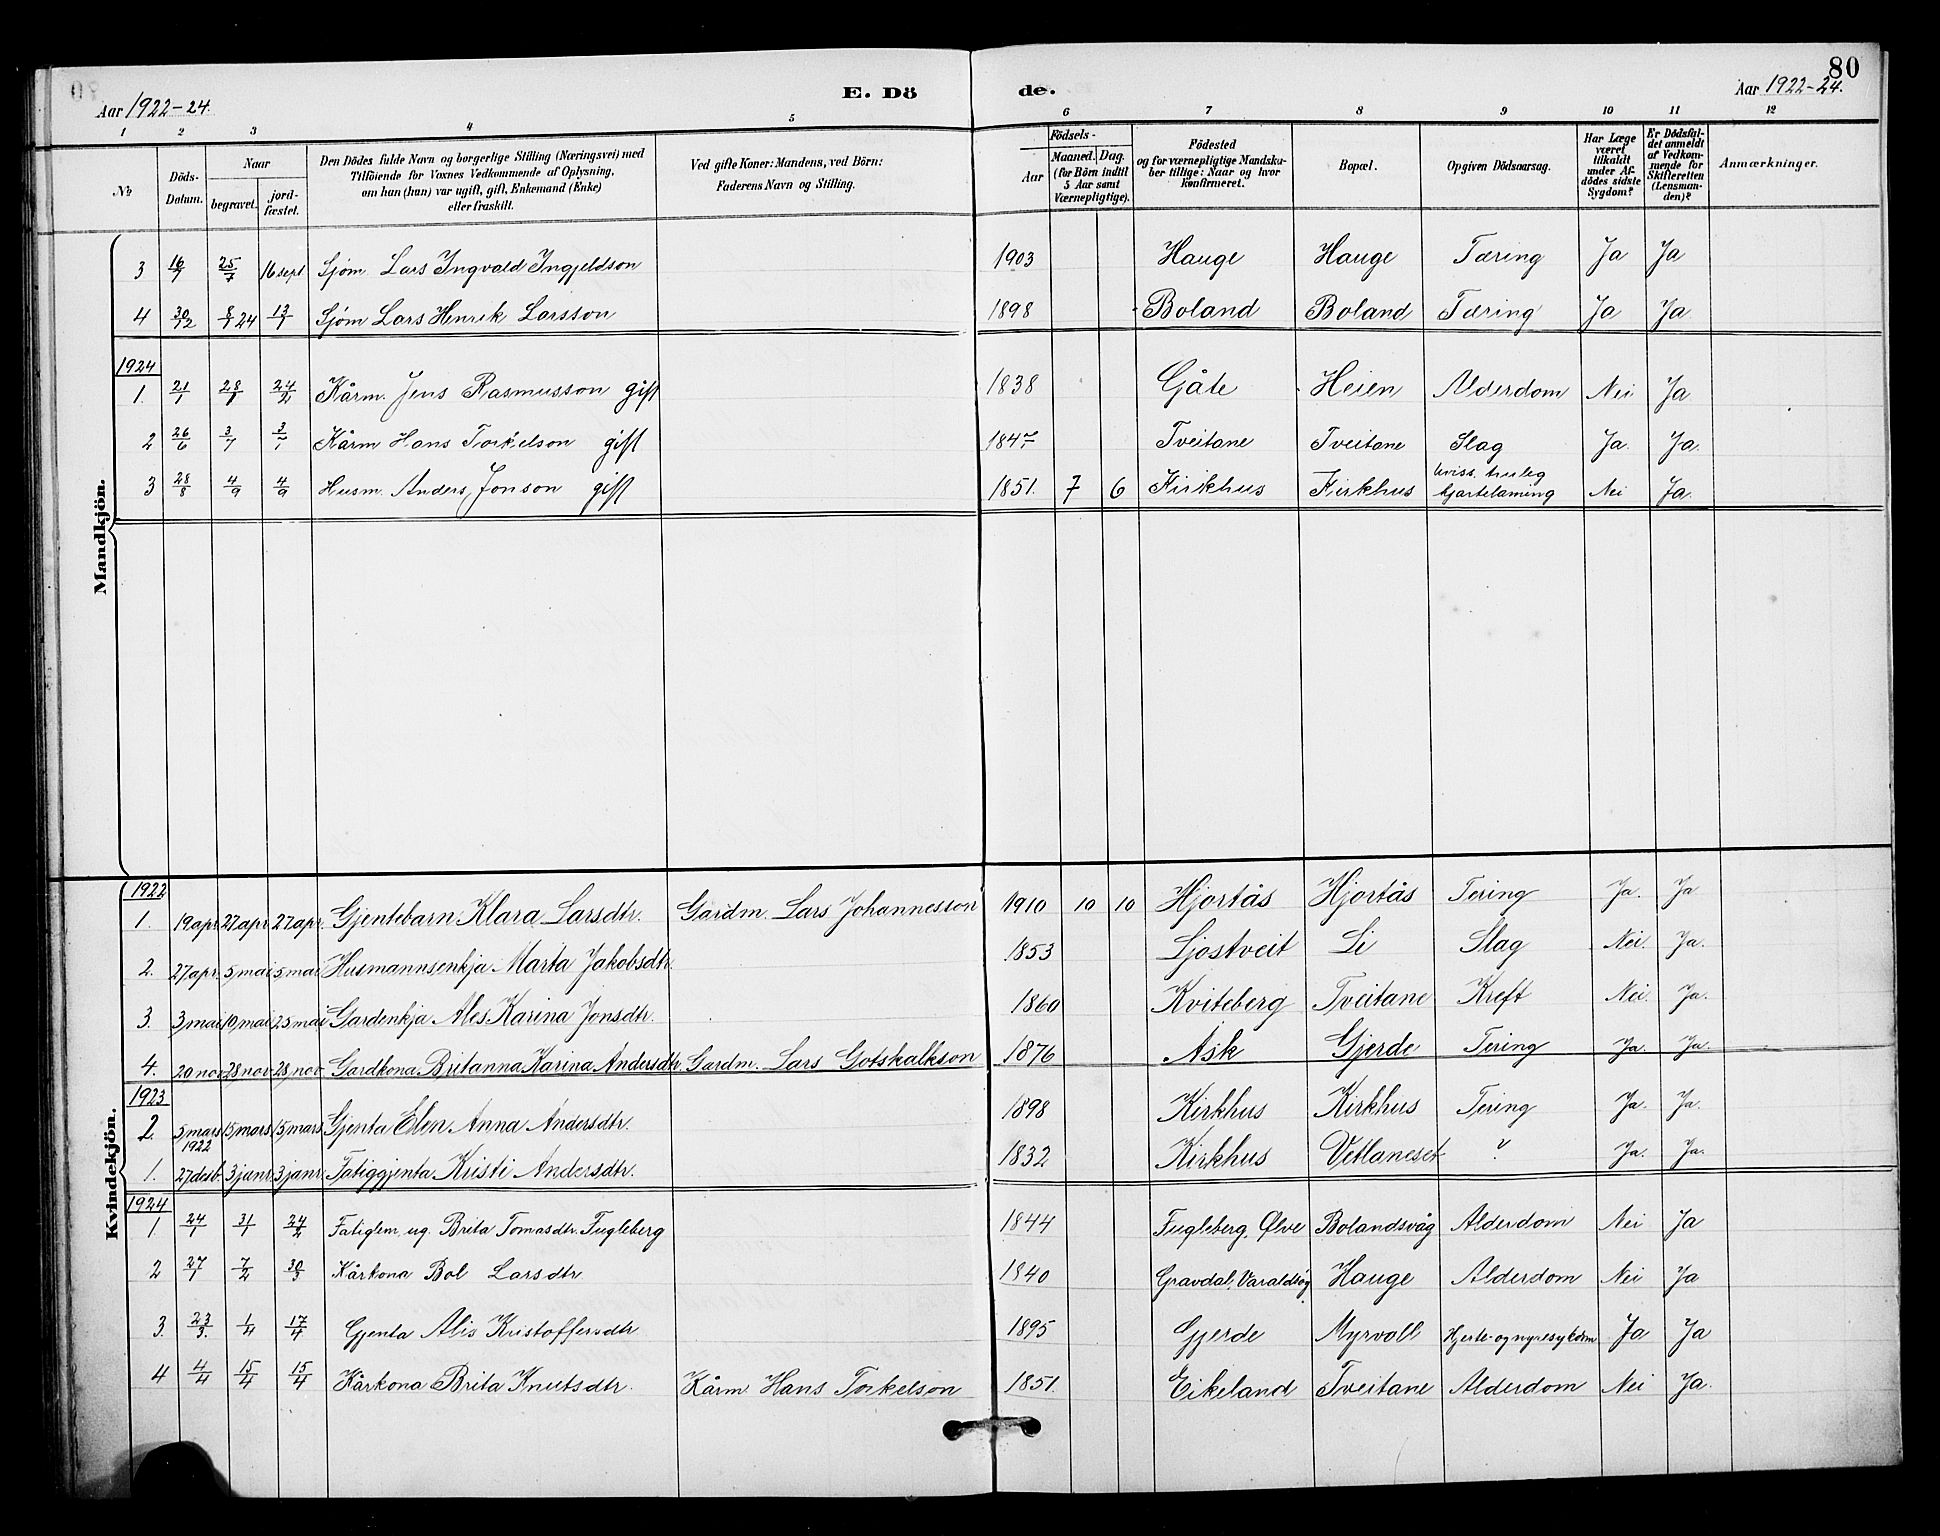 80
Aar 1922-24. E. Dö de. Aar 1922-24.
1 2 3 4 5 6 7 8 9 10 11 12
No
Döds-Datum.
Naar
begravet.
jord-fæstet.
Den Dödes fulde Navn og borgerlige Stilling (Næringsvei) med
Tilföiende for Voxnes Vedkommende af Oplysning,
om han (hun) var ugift, gift, Enkemand (Enke)
eller fraskilt.
Ved gifte Koner: Mandens, ved Börn:
Faderens Navn og Stilling.
Födsels-
Aar
Maaned. Dag.
(for Börn indtil
5 Aar samt
Værnepligtige).
Födested
og for værnepligtige Mandska-
ber tillige: Naar og hvor
konfirmeret.
Bopæl.
Opgiven Dödsaarsag.
Har Læge
været
tilkaldt
under Af-
dödes sidste
Sygdom?
Er Dödsfal-
det anmeldt
af Vedkom-
mende for
Skifteretten
(Lensman-
den)?
Anmærkninger.
Mandkjön.
3 16/7 25/7 16 sept Sjøm. Lars Ingvald Ingjeldson 1903 Hauge Hauge Tæring Ja Ja
4 30/12 8/1 24 13/1 Sjøm Lars Henrik Larsson 1898 Boland Boland Tæring Ja Ja
1924
1. 21/1 28/1 24/2 Kårm. Jens Rasmusson gift 1838 Gåte Heien Alderdom Nei Ja
2 26/6 3/7 3/7 Kårm Hans Torkelson gift 1847 Tveitane Tveitane Slag Ja. Ja.
3 28/8 4/9 4/9 Husm. Anders Jonson gift 1851. 7 6 Kirkhus Kirkhus uviss. truleg hjartelaming Nei Ja.
Kvindekjön.
1922
1. 19 apr 27 apr 27 apr. Gjentebarn Klara Larsdtr. Gardm. Lars Johannesson 1910 10 10 Hjortås Hjortås Tering Ja. Ja
2. 27 apr. 5 mai 5 mai Husmannsenkja Marta Jakobsdtr. 1853 Ljostveit Li Slag Nei. Ja.
3. 3 mai 10 mai 25 mai Gardenkja Ales Karina Jonsdtr. 1860 Kviteberg Tveitane Kreft Nei. Ja.
4. 20 nov 28 nov 28 nov Gardkona Britanna Karina Andersdtr. Gardm. Lars Gotskalkson 1876 Ask Gjerde Tering Ja. Ja.
1923
2. 5 mars 15 mars 15 mars Gjenta Elen Anna Andersdtr. 1898 Kirkhus Kirkhus Tering Ja. Ja.
1922
1. 27 desb. 3 janr. 3 janr. Fatiggjenta Kristi Andersdtr. 1832 Kirkhus Vetlaneset ? Ja. Ja.
1924
1. 24/1 31/1 24/2 Fatiglm, ug. Brita Tomasdtr. Fugleberg 1844 Fugleberg, Ølve Bolandsvåg Alderdom Nei Ja
2 27/1 7/2 30/3 Kårkona Bol Larsdtr 1840 Gravdal, Varaldsøy Hauge Alderdom Nei Ja
3. 23/3. 1/4 17/4 Gjenta Alis Kristoffersdtr 1895 Gjerde Myrvoll Hjerte- og nyresykdom Ja Ja
4 4/4 15/4 15/4 Kårkona Brita Knutsdtr. Kårm Hans Torkelson 1851. Eikeland Tveitane Alderdom Nei Ja.